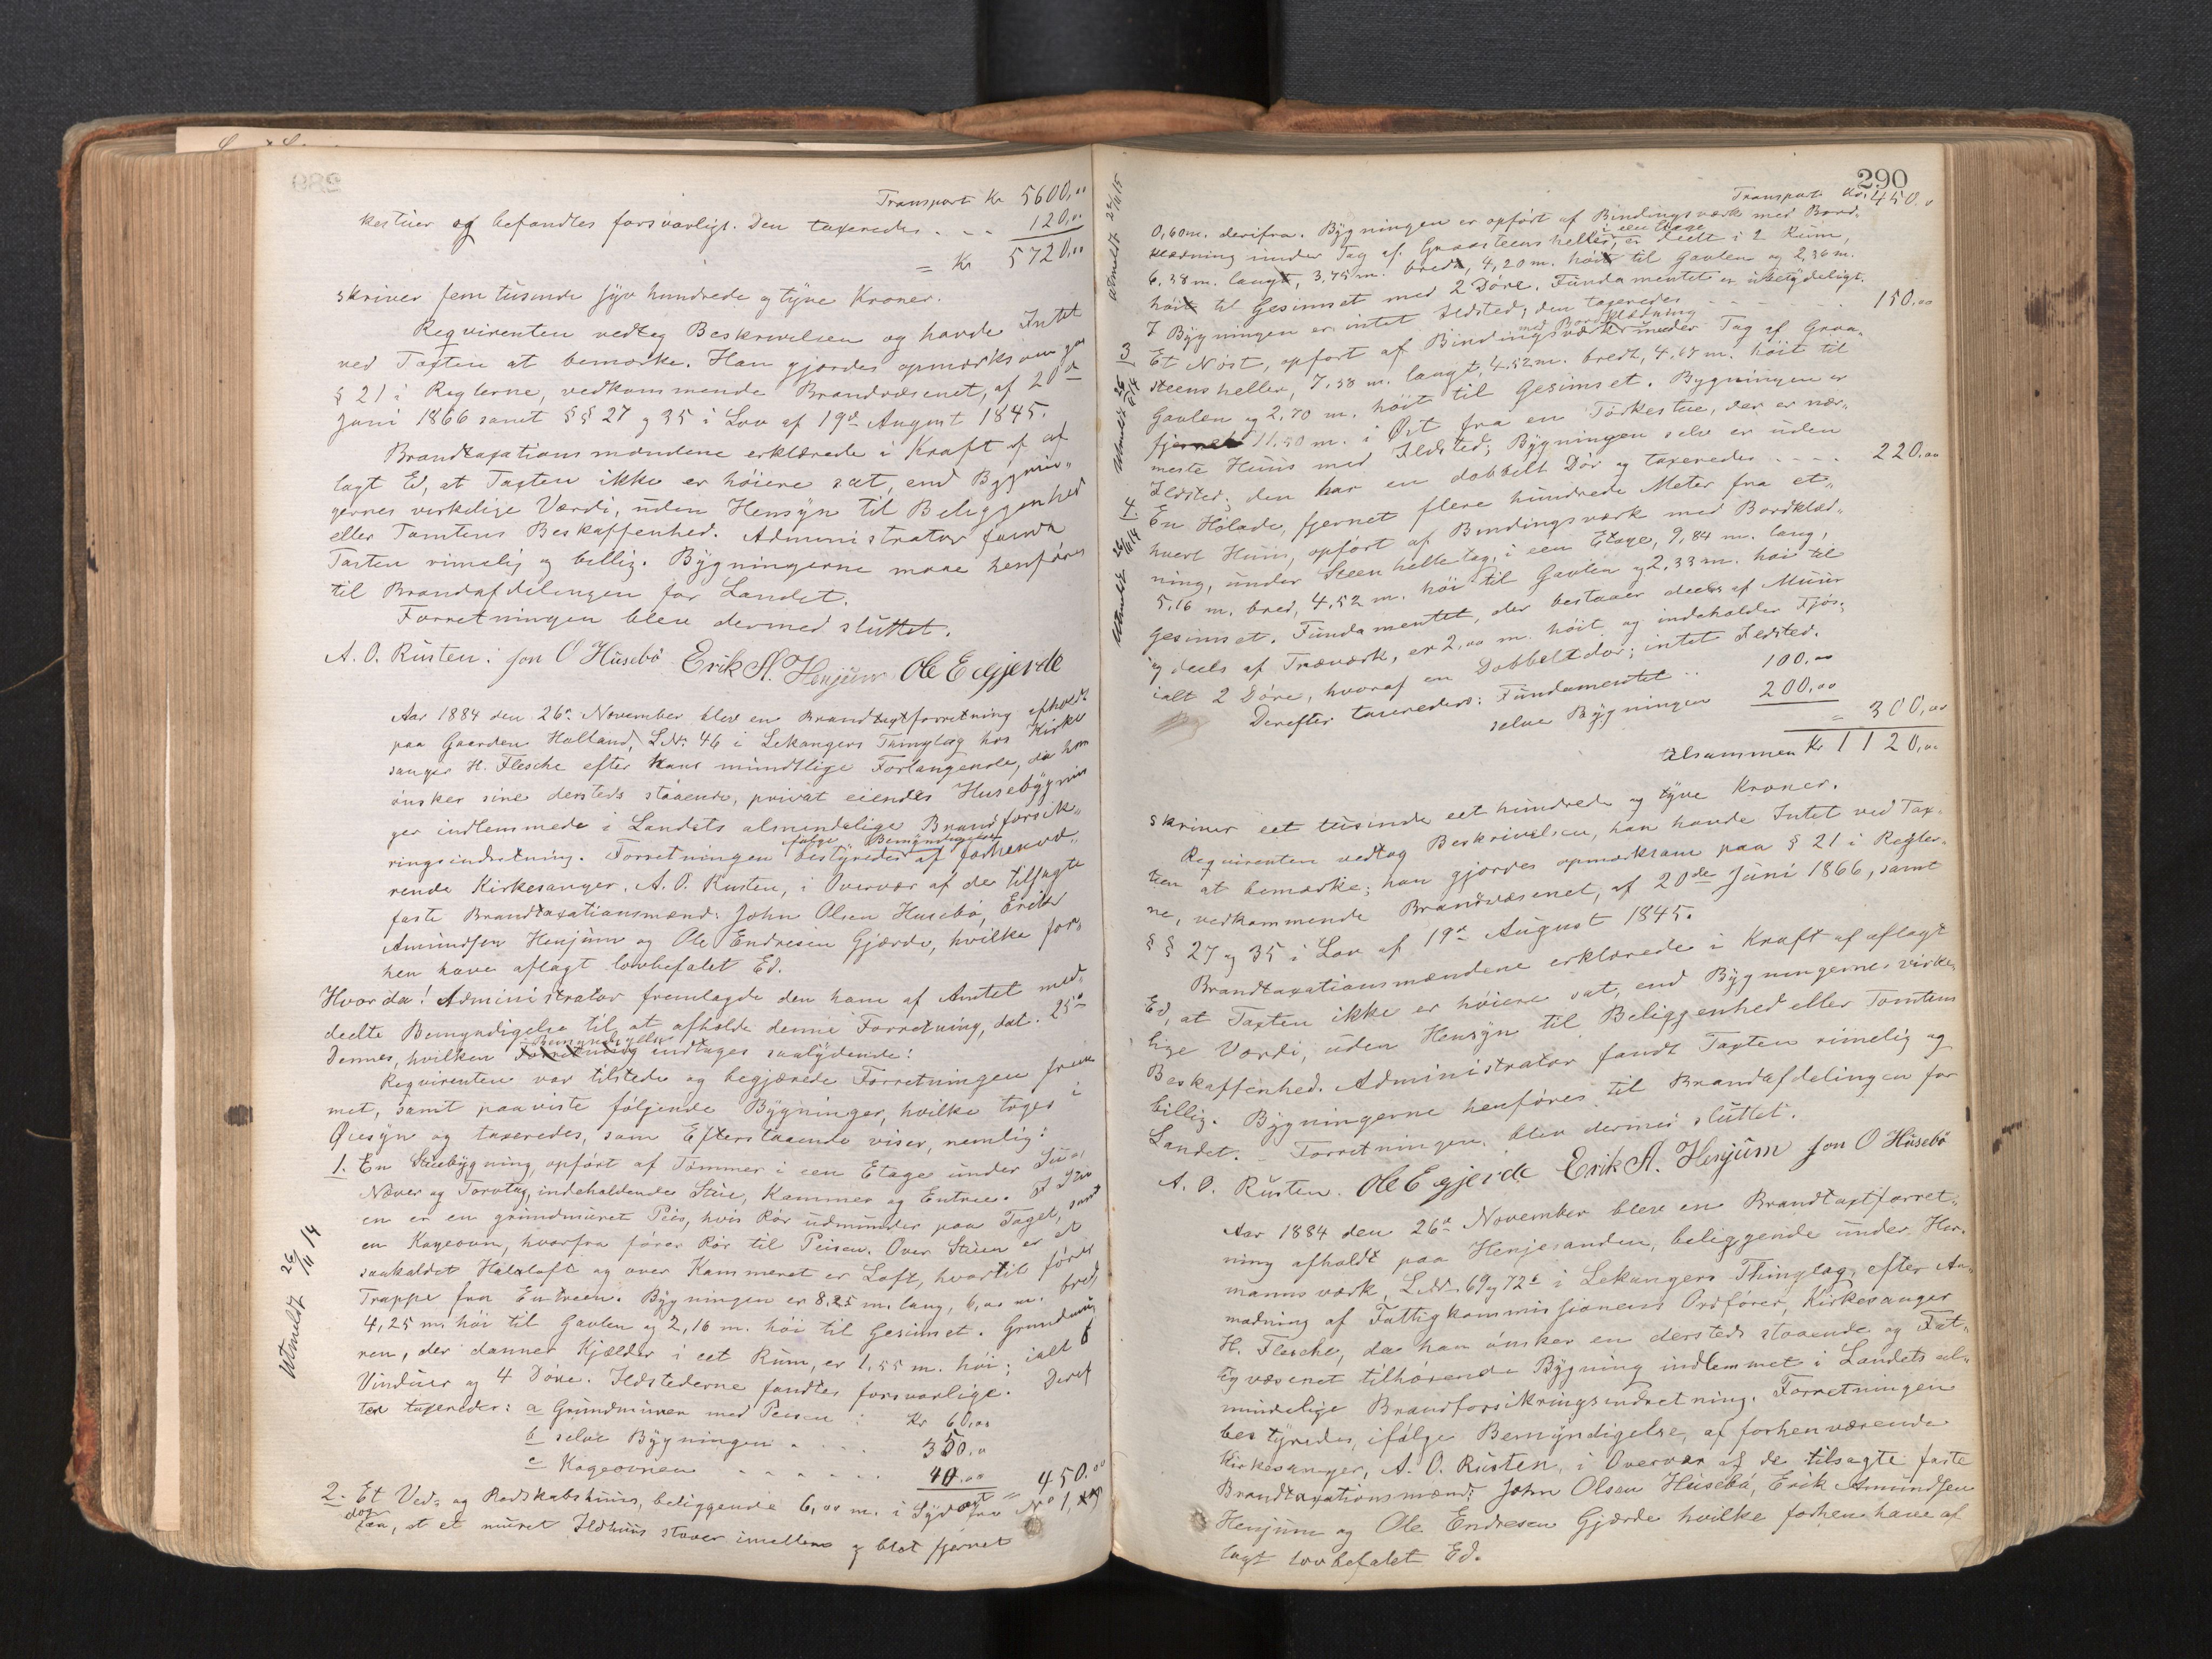 Transport Kr 5600,00
kestuer og befandtes forsvarligt. Den taxeredes . . . 120,00
= Kr 5720,00
skriver fem tusinde syv hundrede og tyve Kroner.
Reqvirenten vedtog Beskrivelsen og havde Intet
ved Taxten at bemærke. Han gjordes opmærksom paa
§ 21 i Reglerne, vedkommende Brandvæsenet, af 20de
Juni 1866 samt §§ 27 og 35 i Lov af 19de August 1845.
Brandtaxationsmændene erklærede i Kraft af af
lagt Ed, at Taxten ikke er høiere sat, end Bygnin„
gernes virkelige Værdi, uden Hensyn til Beliggenhed
eller Tomtens Beskaffenhed. Administrator fandt
Taxten rimelig og billig. Bygningerne maae henføres
til Brandafdelingen for Landet.
Forretningen blev dermed sluttet.
A. O. Rusten. Jon O Husebö Erik A. Henjum Ole E Gjerde
Aar 1884 den 26de November blev en Brandtaxtforretning afholdt
paa Gaarden Halland, L.No. 46 i Lekangers Thinglag hos Kirke
sanger H. Flesche efter hans mundtlige Forlangende, da han
ønsker sine dersteds staaende, privat eiendes Husebygnin
ger indlemmede i Landets almindelige Brandforsik„
ringsindretning. Forretningen bestyredes ifølge Bemyndigelse af forhenvæ„
rende Kirkesanger, A. O. Rusten, i Overvær af de tilsagte
faste Brandtaxationsmænd: John Olsen Husebö, Erik
Amundsen Henjum og Ole Endresen Gjærde, hvilke for„
hen have aflagt lovbefalet Ed.
Hvorda! Administrator fremlagde den ham af Amtet med„
deelte Bemyndigelse til at afholde denne Forretning, dat. 25de
Dennes, hvilken Bemyndigelse indtages saalydende:
Reqvirenten var tilstede og begjærede Forretningen frem
met, samt paaviste følgende Bygninger, hvilke toges i
Øiesyn og taxeredes, som Efterstaaende viser, nemlig:
1. En Stuebygning, opført af Tømmer i een Etage under
Næver og Torvtag, indeholdende Stue, Kammer og Entree. I Stu
en er en grundmuret Peis, hvis Rør udmunder paa Taget, samt
en Kageovn, hvorfra fører Rør til Peisen. Over Stuen er et
saakaldet Halvloft og over Kammeret er Loft, hvortil fører
Trappe fra Entreen. Bygningen er 8,25 m. lang, 6,00 m. bred
4,25 m. høi til Gavlen og 2,16 m. høi til Gesimset. Grundmu
ren, der danner Kjælder i eet Rum, er 1,55 m. høi; ialt 6
Vinduer og 4 Døre. Ildstederne fandtes forsvarlige. Deref
ter taxeredes: a Grundmuren med Peisen : Kr 60,00
b selve Bygningen . . . . 350,00
c Kageovnen . . . . . . 40,00 = 450,00
2. Et Ved- og Redskabshuus, beliggende 6,00 m. i Sydøst fra No 1,
dog saa, at et muret Ildhuus staaer imellem og blot fjernet
Utmeldt 26/11 14
290
Transport Kr. 450,00
0,60 m. derifra. Bygningen er opført af Bindingsværk med Bord„
klædning under Tag af Graasteenshelle, i een Etage, er deelt i 2 Rum,
6,38 m. langt, 3,75 m. bredt, 4,20 m. høit til Gavlen og 2,36 m.
høit til Gesimset med 2 Døre. Fundamentet er ubetydeligt.
I Bygningen er intet Ildsted; den taxeredes . . . 150,00
3 Et Nøst, opført af Bindingsværk med Bordklædning under Tag af Graa„
steensheller, 7,38 m. langt, 4,52 m. bredt, 4,67 m. høit til
Gavlen og 2,70 m. høit til Gesimset. Bygningen er
fjernet 11,50 m. i Øst fra en Tørkestue, der er nær„
meste Huus med Ildsted; Bygningen selv er uden
Ildsted; den har en dobbelt Dør og taxeredes . . . . 220,00
4. En Hølade, fjernet flere hundrede Meter fra et„
hvert Huus, opført af Bindingsværk med Bordklæd„
ning, under Steenhelletag, i een Etage, 9,84 m. lang,
5,16 m. bred, 4,52 m. høi til Gavlen og 2,33 m. høi til
Gesimset. Fundamentet, der bestaaer deels af Muur
og deels af Træværk, er 2,00 m. høit og indeholder Fjøs;
ialt 2 Døre, hvoraf en Dobbeltdør; intet Ildsted.
Derefter taxeredes: Fundamentet .. 100,00
selve Bygningen 200,00
= 300,00
tilsammen Kr 1120,00
skriver eet tusinde eet hundrede og tyve Kroner.
Reqvirenten vedtog Beskrivelsen, han havde Intet ved Tax„
ten at bemærke; han gjordes opmærksom paa § 21 i Regler„
ne, vedkommende Brandvæsenet, af 20de Juni 1866, samt
§§ 27 og 35 i Lov af 19de August 1845.
Brandtaxationsmændene erklærede i Kraft af aflagt
Ed, at Taxten ikke er høiere sat, end Bygningernes virke„
lige Værdi, uden Hensyn til Beliggenhed eller Tomtens
Beskaffenhed. Administrator fandt Taxten rimelig og
billig. Bygningerne henføres til Brandafdelingen for
Landet. – Forretningen blev dermed sluttet.
A. O. Rusten. Ole E gjerde Erik A. Henjum Jon O Husebö
Aar 1884 den 26de November blev en Brandtaxtforret„
ning afholdt paa Henjesanden, beliggende under Her„
mannsværk, L.No. 69 og 72a i Lekangers Thinglag, efter An„
modning af Fattigkommissionens Ordfører, Kirkesanger
H. Flesche, da han ønsker en dersteds staaende og Fat„
tigvæsenet tilhørende Bygning indlemmet i Landets al„
mindelige Brandforsikringsindretning. Forretningen
bestyredes, ifølge Bemyndigelse, af forhenværende
Kirkesanger, A. O. Rusten, i Overvær af de tilsagte faste
Brandtaxationsmænd: John Olsen Husebö, Erik Amundsen
Henjum og Ole Endresen Gjærde hvilke forhen have af
lagt lovbefalet Ed.